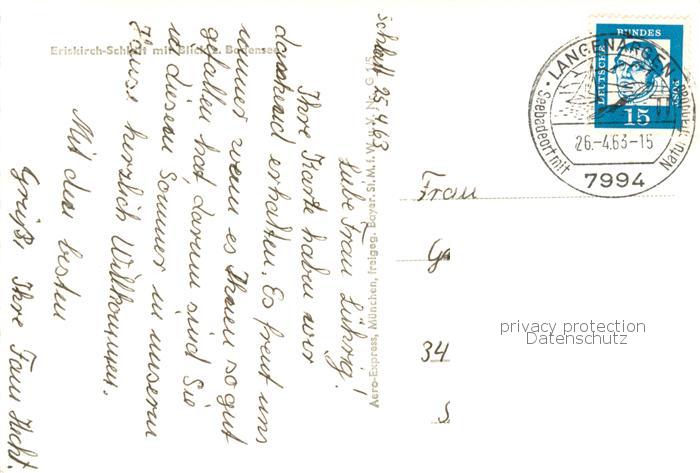 Eriskirch-Schlatt mit Blick z. Bodensee
Schlatt 25.4.63
Liebe Frau Lührig!
Ihre Karte haben wir
dankend erhalten. Es freut uns
immer wenn es Ihnen so gut
gefallen hat, darum sind Sie
in diesem Sommer in unserm
Hause herzlich Willkommen.
Mit den besten
Grüße Ihre Fam Hecht.
Aero-Express, München, freigeg. Bayer. St. M. f. W. u. V. Nr. G
Frau
34
DEUTSCHE BUNDESPOST
15
LANGENARGEN
Seebadeort mit
Natur
26.-4.63-15
7994
privacy protection
Datenschutz